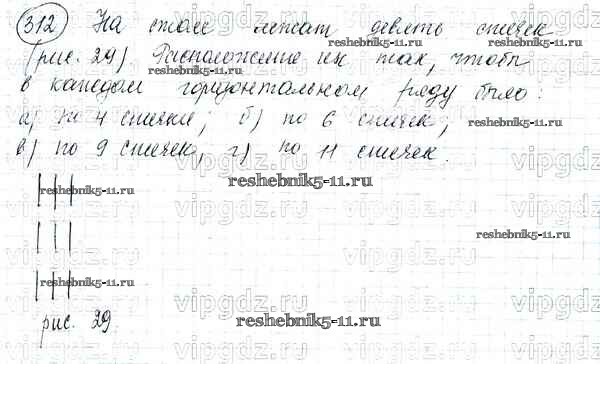 312 На столе лежат девять спичек
reshebnik5-11.ru
(рис. 29). Расположение их так, чтобы
reshebnik5-11.ru
в каждом горизонтальном ряду было:
а) по 4 спички; б) по 6 спичек;
reshebnik5-11.ru
в) по 9 спичек, г) по 11 спичек.
reshebnik5-11.ru
reshebnik5-11.ru
reshebnik5-11.ru
reshebnik5-11.ru
рис. 29.
reshebnik5-11.ru
vipgdz.ru vipgdz.ru vipgdz.ru